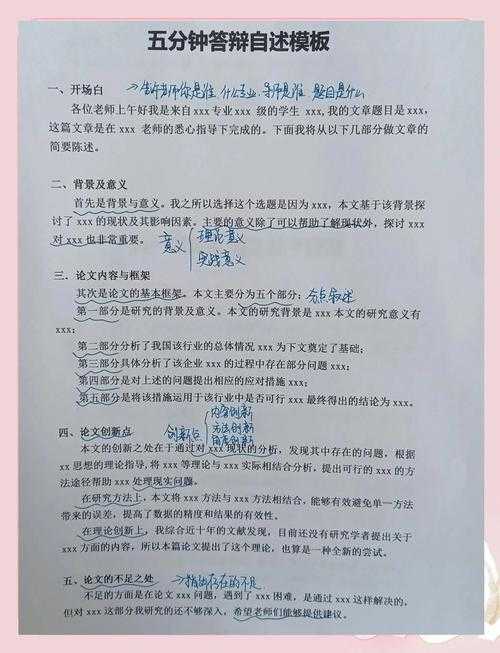 五分钟答辩自述模板
一、开场白 →告诉老师你是谁、什么专业、导师是谁、题目是什么
各位老师上午好我是来自 xxx 专业 xxx 级的学生 xxx,我的文章题目是 xxx,
这篇文章是在 xxx 老师的悉心指导下完成的。下面我将从以下几部分做文章的
简要陈述。
二、背景及意义
首先是背景与意义。我之所以选择这个选题是因为 xxx,本文基于该背景探
讨了 xxx 的现状及其影响因素。主要的意义除了可以帮助了解现状外,探讨 xxx
对 xxx 也非常重要。 意义
理论意义
实践意义
三、论文内容与框架
其次是论文的基本框架。本文主要分为五个部分: 分点叙述
第一部分是研究的背景及意义。本文的研究背景是 xxx 本文的研究意义有
xxx;
第二部分分析了我国该行业的总体情况 xxx 为下文奠定了基础;
第三部分具体分析了该企业 xxx 的过程中存在部分问题 xxx;
第四部分是对上述的问题提出相应的应对措施 xxx;
第五部分是将该措施运用于该行业中是否可行 xxx 最终得出的结论为 xxx。
四、论文创新点 创新点
内容创新
方法创新
角度创新
本文的创新之处在于通过对 xxx 现状的分析,发现其中存在的问题,根据
xx 思想的理论指导,将 xxx 等理论与 xxx 实际相结合分析,提出可行的 xxx 的方
法途径帮助 xxx 处理现实问题。
在研究方法上,本文将 xxx 方法与 xxx 方法相结合,能够有效避免单一方法
带来的误差,提高了数据的精度和结果的有效性。
在理论创新上,我综合近十年的文献发现,目前还没有研究学者提出关于
xxx 方面的内容,所以本篇论文提出了这个理论,也算是一种全新的尝试。
五、论文的不足之处 →指出存在的不足
不足的方面是在论文 xxx 问题,遇到了 xxx 困难,是通过 xxx 这样解决的。
但对 xxx 这部分我研究的还不够深入,希望老师们能够提供建议。